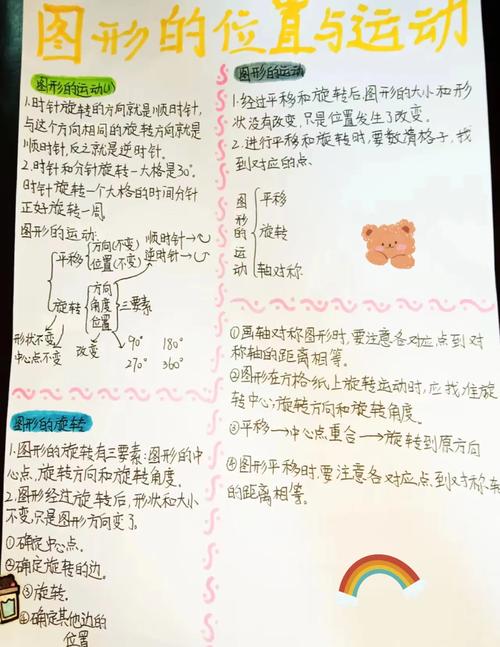 图形的位置与运动
图形的运动(1)
1.时针旋转的方向就是顺时针,
与这个方向相同的旋转方向就是
顺时针,反之就是逆时针。
2.时针和分针旋转一大格是30°。
时针旋转一个大格的时间分针
正好旋转一周。
图形的运动:
平移
方向(不变)
位置(不变)
顺时针→
逆时针→
旋转
方向
角度
位置
三要素
形状不变
中心点不变
改变
90° 180°
270° 360°
图形的旋转
1.图形的旋转有三要素:图形的中
心点,旋转方向和旋转角度。
2.图形经过旋转后,形状和大小
不变,只是图形方向变了。
①确定中心点。
②确定旋转的边。
③旋转.
④确定其他边的
位置
图形的运动
1.经过平移和旋转后,图形的大小和形
状没有改变,只是位置发生了改变。
2.进行平移和旋转时,要数清格子,找
到对应的点、
图形的运动
平移
旋转
轴对称
①画轴对称图形时,要注意各对应点到对
称轴的距离相等。
②图形在方格纸上旋转运动时,应找准旋
转中心,旋转方向和旋转角度。
③平移→中心点重合→旋转到原方向
④图形平移时,要注意各对应点到对称轴
的距离相等。